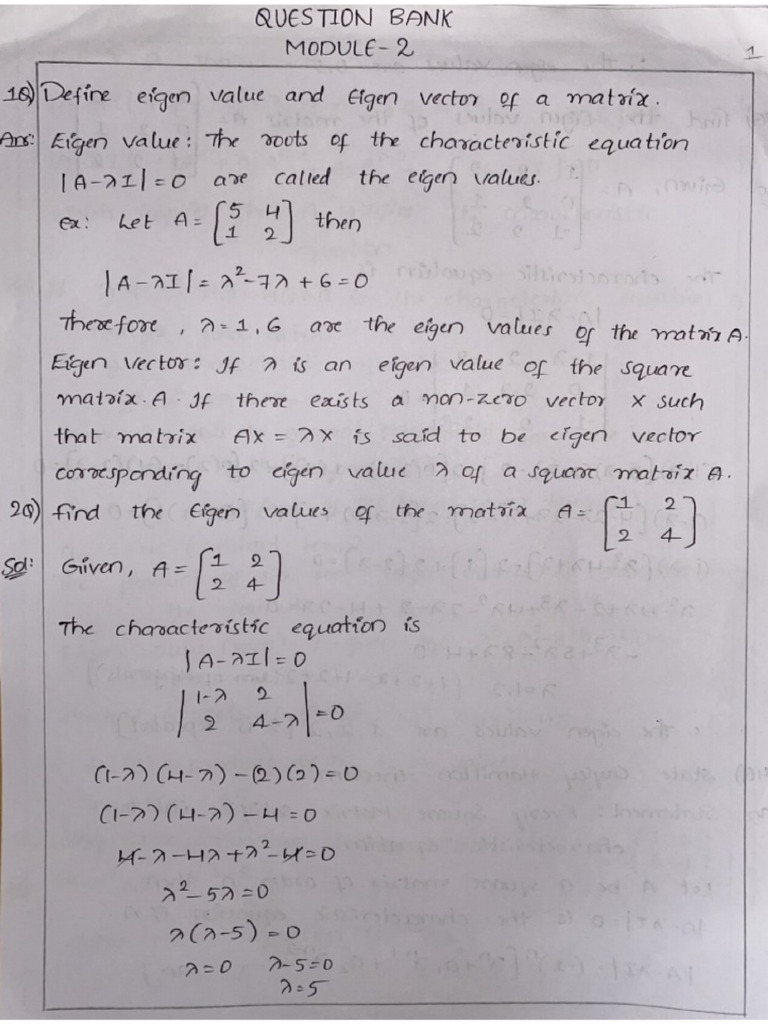 QUESTION BANK
MODULE-2
1
1Q) Define eigen value and Eigen vector of a matrix.
Ans: Eigen value: The roots of the characteristic equation
|A-λI|=0 are called the eigen values.
ex: Let A = [5 4
1 2] then
|A-λI| = λ²-7λ+6=0
Therefore, λ=1,6 are the eigen values of the matrix A.
Eigen vector: If λ is an eigen value of the square
matrix A. If there exists a non-zero vector X such
that matrix AX = λX is said to be eigen vector
corresponding to eigen value λ of a square matrix A.
2Q) find the Eigen values of the matrix A = [1 2
2 4]
Sol: Given, A = [1 2
2 4]
The characteristic equation is
|A-λI|=0
|1-λ 2
2 4-λ|=0
(1-λ)(4-λ)-(2)(2)=0
(1-λ)(4-λ)-4=0
4-λ-4λ+λ²-4=0
λ²-5λ=0
λ(λ-5)=0
λ=0 λ-5=0
λ=5